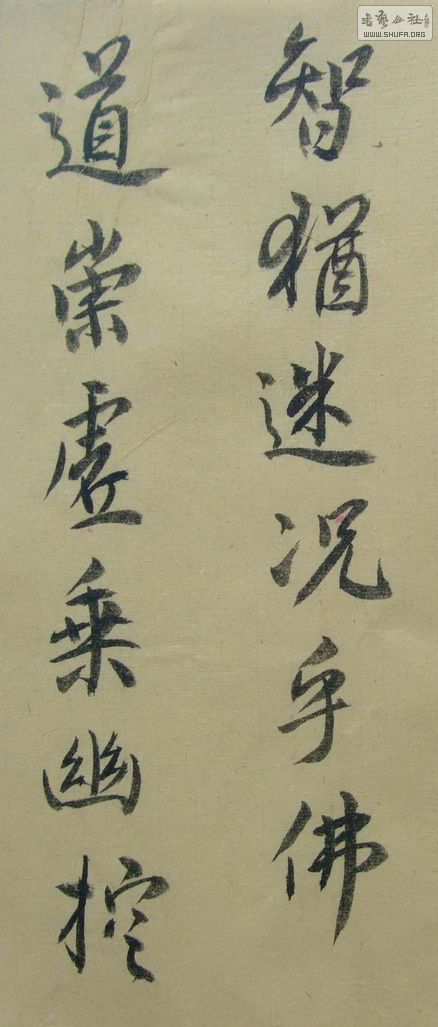 智猶迷况乎佛
道崇虛乗幽控
書藝公社
WWW.SHUFA.ORG